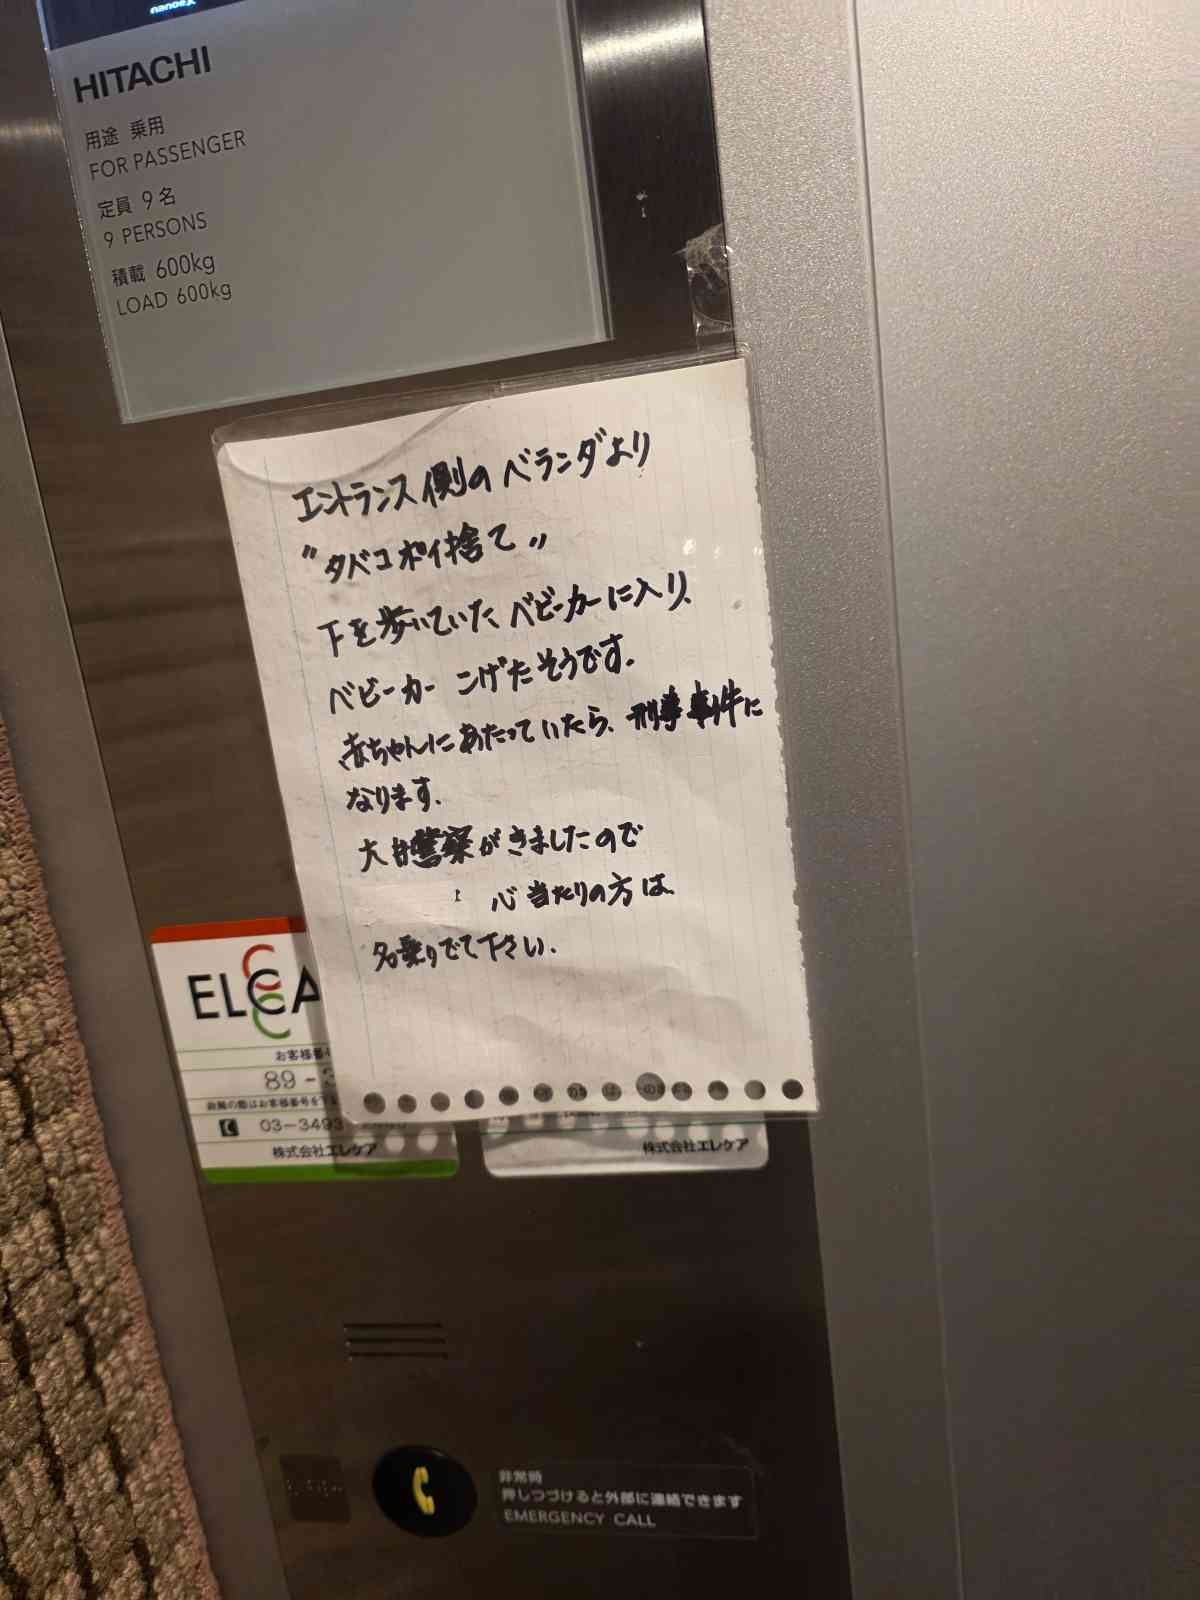 nanoeX
HITACHI
用途 乗用
FOR PASSENGER
定員 9名
9 PERSONS
積載 600kg
LOAD 600kg
エントランス側のベランダより
〃タバコポイ捨て〃
下を歩いていた、ベビーカーに入り、
ベビーカー こげたそうです。
赤ちゃんにあたっていたら、刑事事件に
なります。
警察がきましたので
心当たりの方は、
名乗りでて下さい.
ELCA
お客様番号
89-3
03-3493
株式会社エレケア
株式会社エレケア
非常時
押しつづけると外部に連絡できます
EMERGENCY CALL